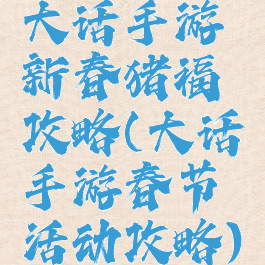 大话手游
新春猪福
攻略(大话
手游春节
活动攻略)